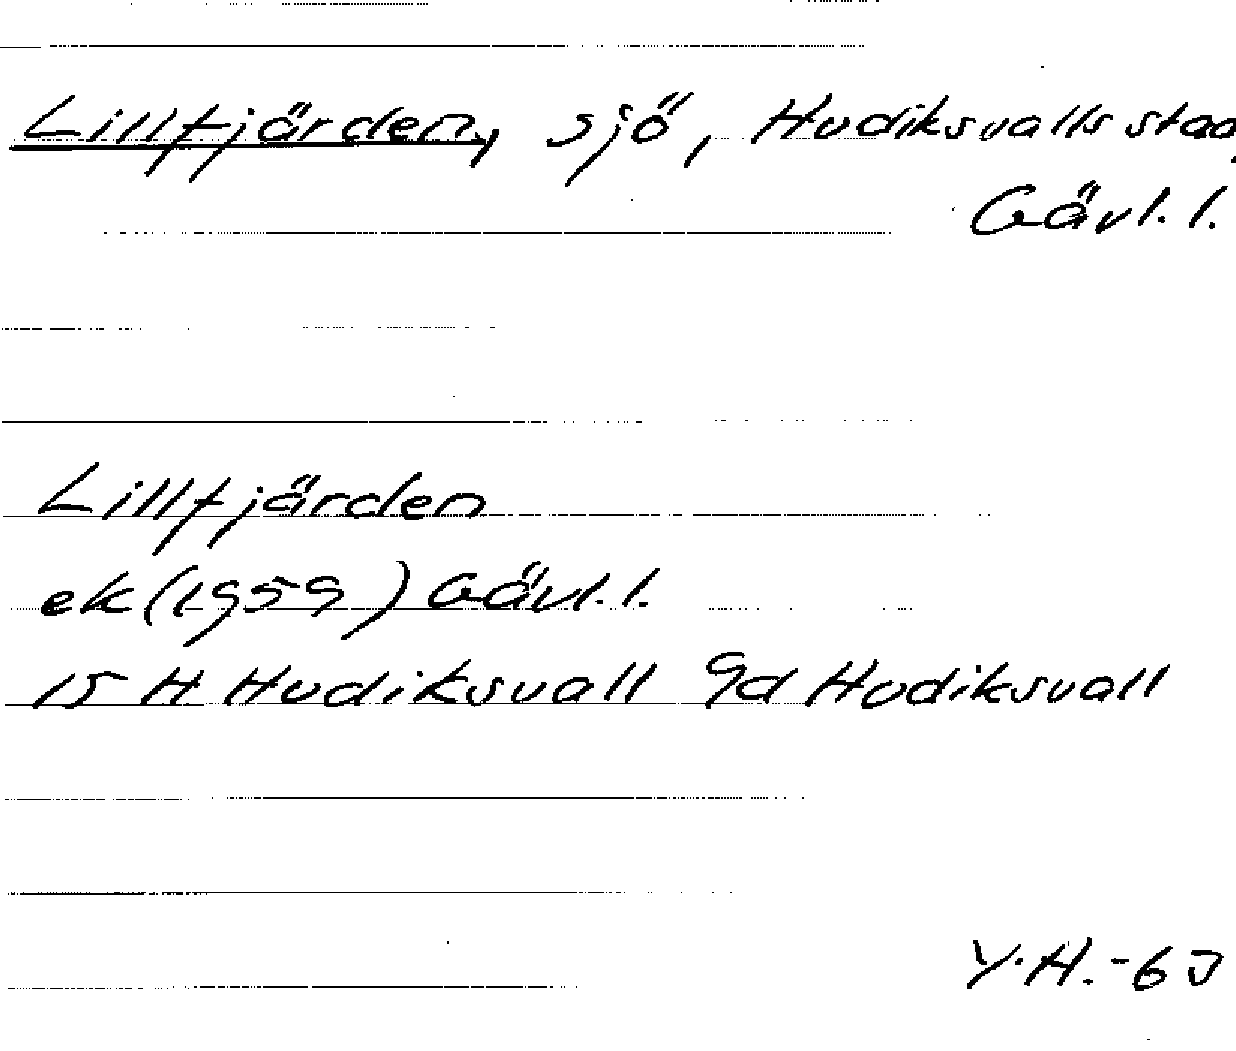 Lillfjärden, sjö, Hudiksvalls stad,
Gävl. l.
Lillfjärden
ek (1959) Gävl. l.
15 H Hudiksvall 9d Hudiksvall
Y.H.-63